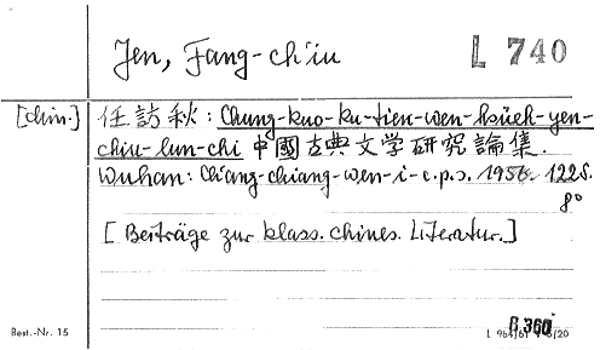 Jen, Fang-ch'iu
L 740
[chin.] 任訪秋: Chung-kuo-ku-tien-wen-hsüeh-yen-
chiu-lun-chi 中國古典文学研究論集.
Wuhan: Ch'ang-chiang-wen-i-c.p.s. 1956. 122S.
8°
[Beiträge zur klass. chines. Literatur.]
B 360
Best.-Nr. 15